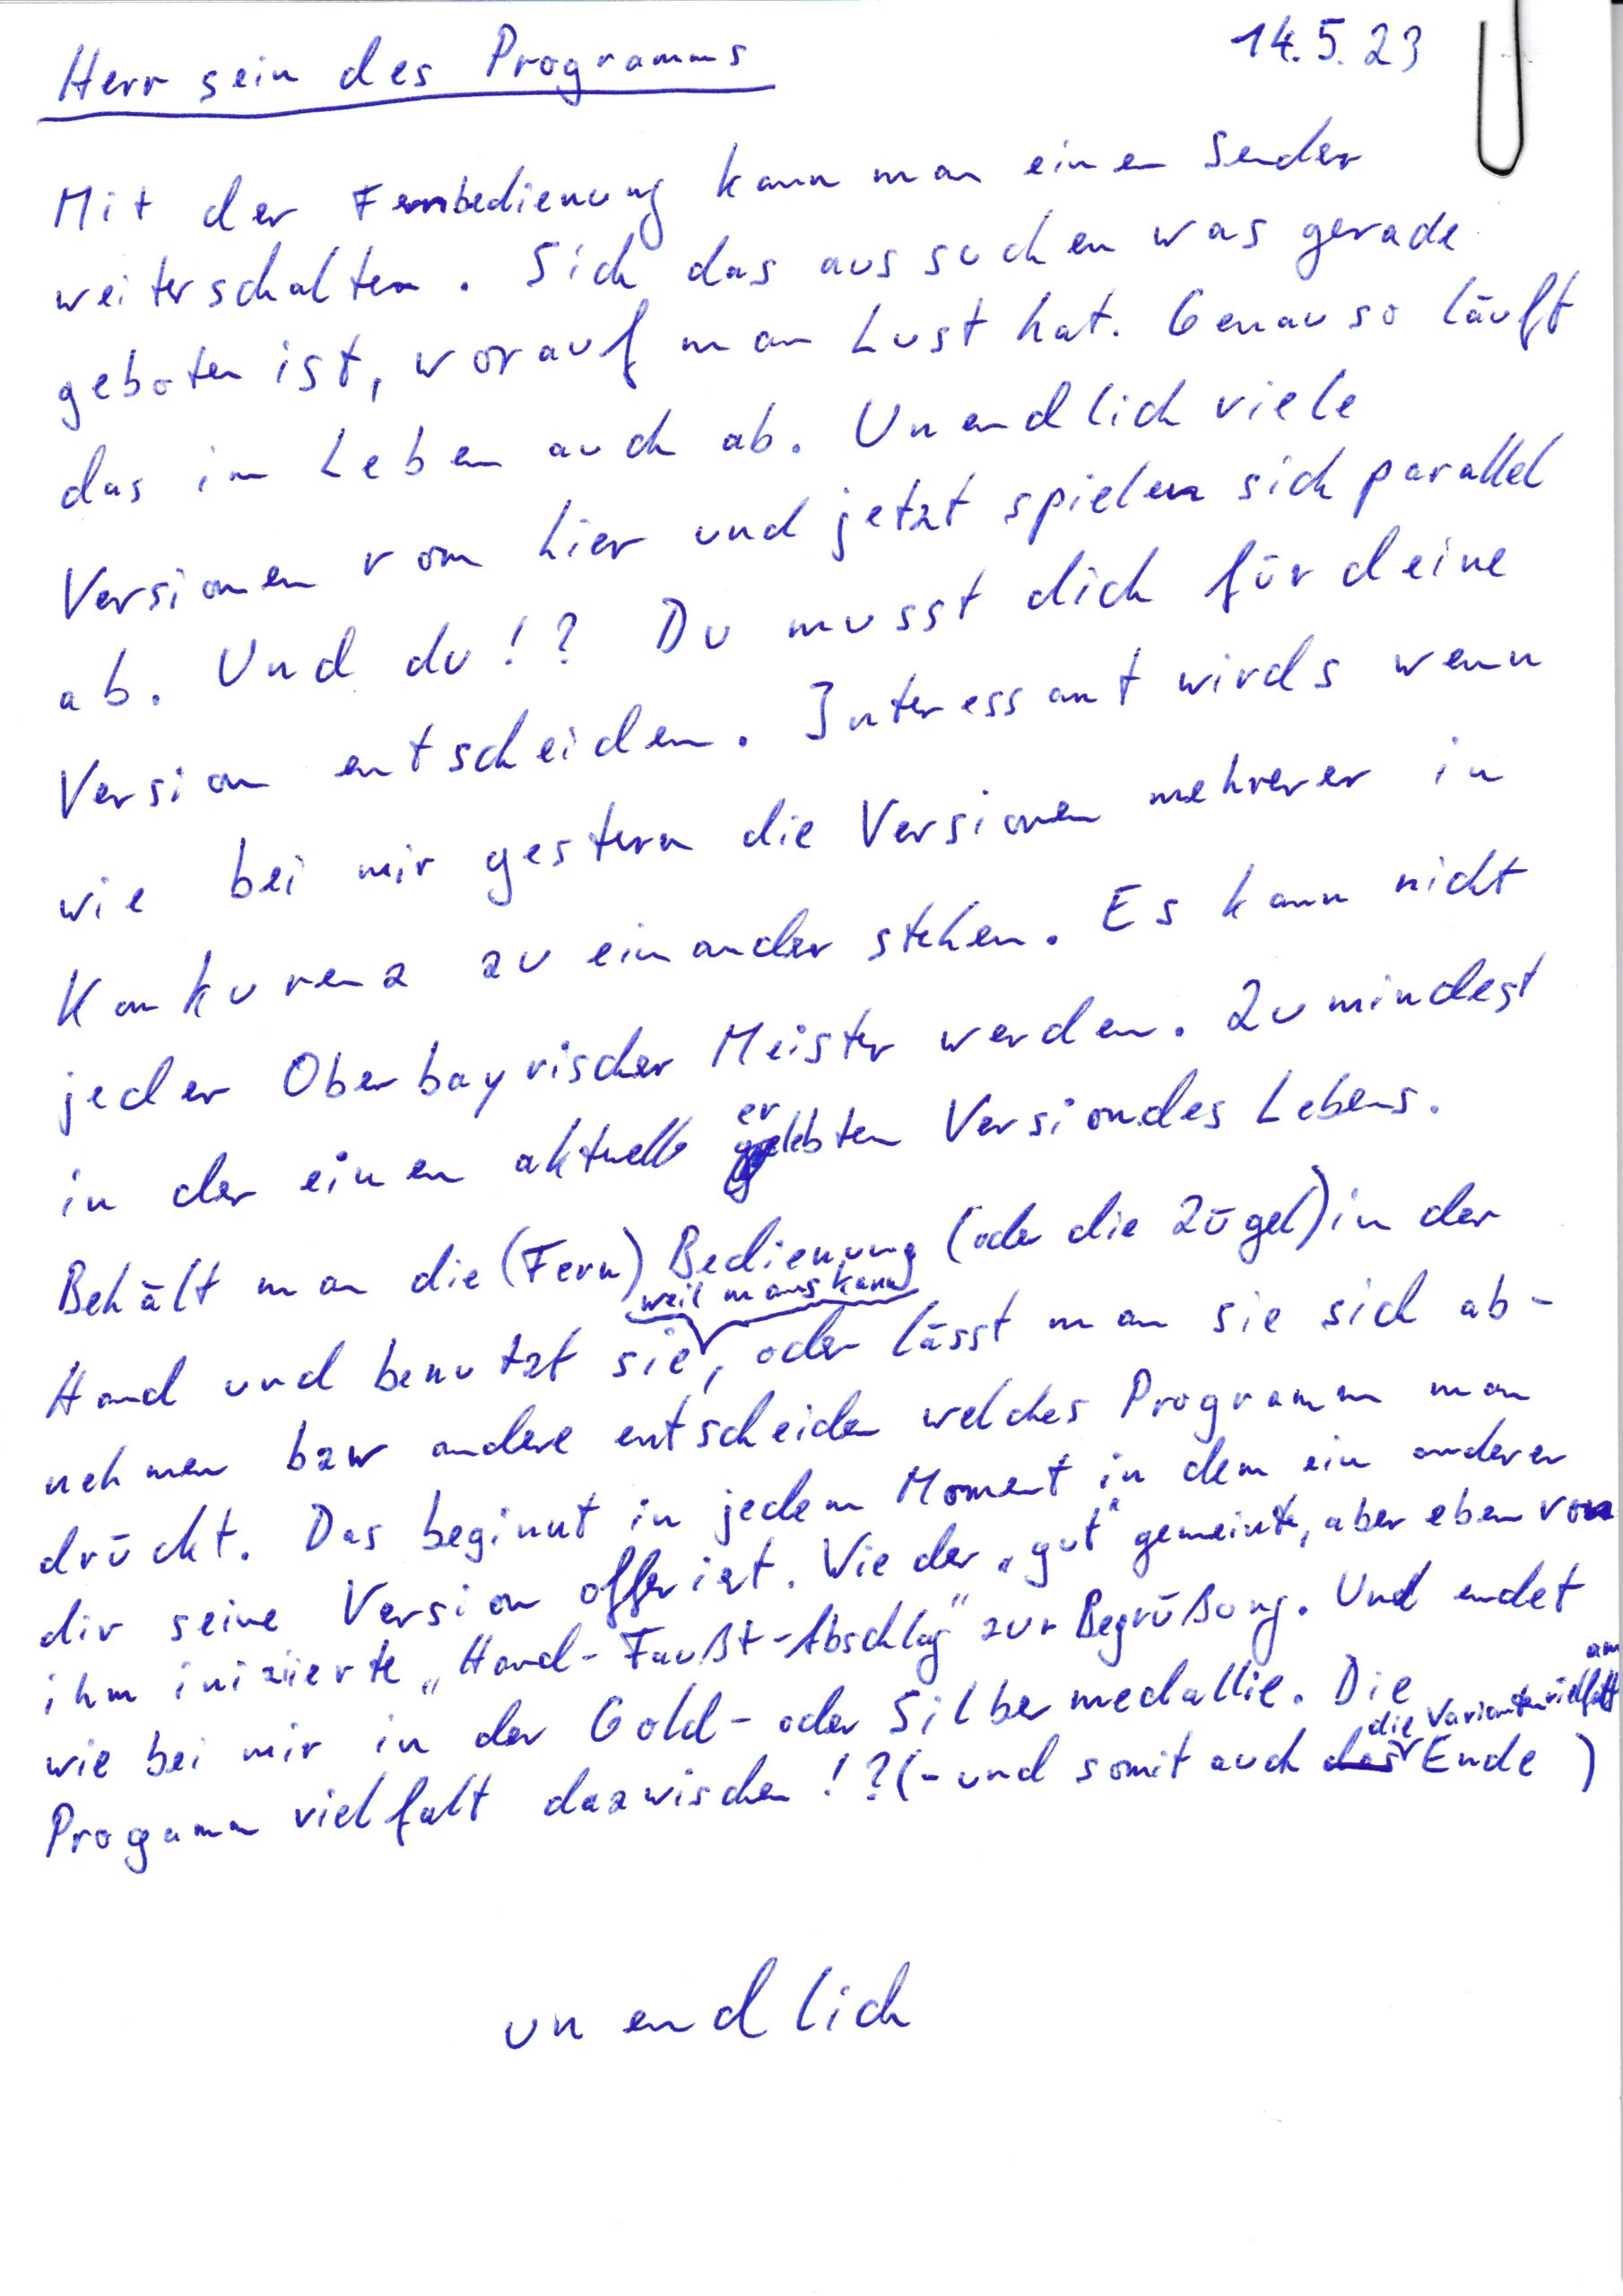 Herr sein des Programms
14.5.23
Mit der Fernbedienung kann man einen Sender
weiterschalten. Sich das aussuchen was gerade
geboten ist, worauf man Lust hat. Genauso läuft
das im Leben auch ab. Unendlich viele
Versionen vom hier und jetzt spielen sich parallel
ab. Und du!? Du musst dich für deine
Version entscheiden. Interessant wirds wenn
wie bei mir gestern die Versionen mehrerer in
Konkurenz zu einander stehen. Es kann nicht
jeder Oberbayrischer Meister werden. Zumindest
er
in der einen aktuell gelebten Version des Lebens.
Behält man die (Fern) Bedienung (oder die Zügel) in der
weil mans kann
Hand und benutzt sie, oder lässt man sie sich ab-
nehmen bzw andere entscheiden welches Programm man
drückt. Das beginnt in jedem Moment in dem ein anderer
dir seine Version offeriert. Wie der „gut" gemeinte, aber eben von
ihm iniziierte „Hand-Faußt-Abschlag" zur Begrüßung. Und endet
wie bei mir in der Gold- oder Silbermedallie. Die
am
die Variantenvielfalt
Progamm vielfalt dazwischen!? (- und somit auch das Ende)
unendlich